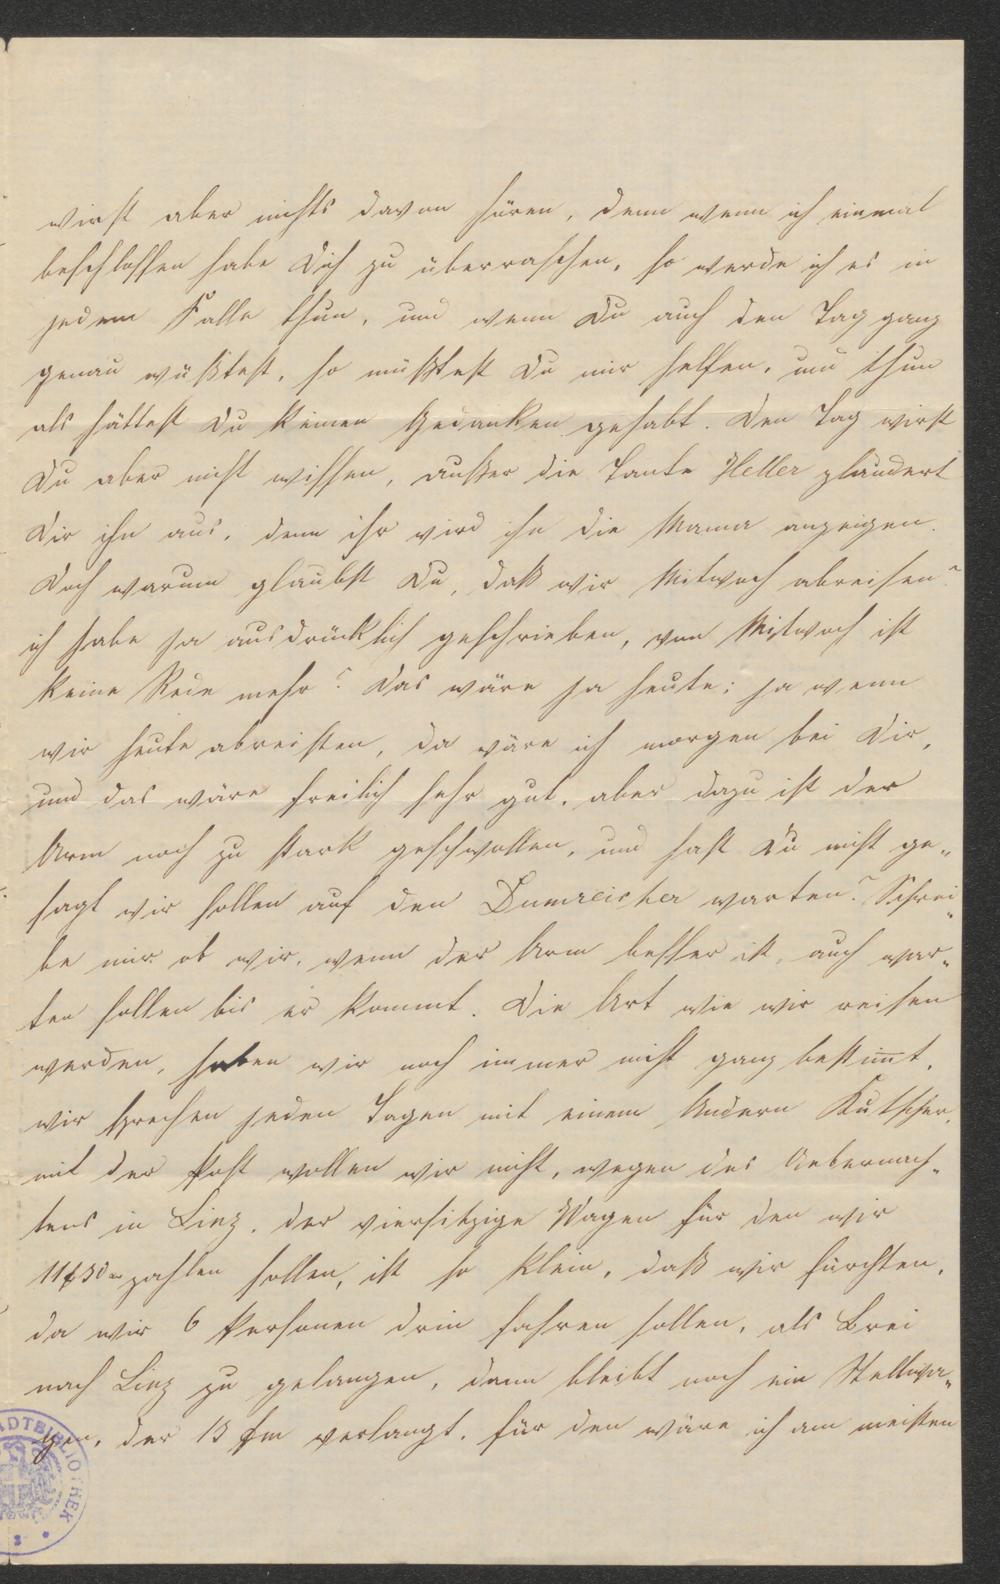 wirst aber nichts davon hören, denn wenn ich einmal
beschlossen habe Dich zu überraschen, so werde ich es in
jedem Falle thun, und wenn Du auch den Tag ganz
genau wüßtest, so müßtest Du mir helfen, und thun
als hättest Du keinen Gedanken gehabt. Den Tag wirst
Du aber nicht wissen, außer die Tante Heller plaudert
Dir ihn aus, denn ihr wird ihn die Mama anzeigen.
Doch warum glaubst Du, daß wir Mitwoch abreisen?
ich habe ja ausdrücklich geschrieben, von Mitwoch ist
keine Rede mehr? Das wäre ja heute; ja wenn
wir heute abreisten, da wäre ich morgen bei Dir,
und das wäre freilich sehr gut, aber dazu ist der
Arm noch zu stark geschwollen, und hast Du nicht ge„
sagt wir sollen auf den Dumreicher warten? Schrei„
be mir ob wir, wenn der Arm besser ist, auch war„
ten sollen bis er kommt. Die Art wie wir reisen
werden, haben wir noch immer nicht ganz bestimt,
wir sprechen jeden Tagen mit einem Andern Kutscher,
mit der Post wollen wir nicht, wegen des Uebernach„
tens in Linz. der viersitzige Wagen für den wir
11f 30 zahlen sollen, ist so klein, daß wir fürchten,
da wir 6 Personen drin fahren sollen, als Brei
nach Linz zu gelangen, dann bleibt noch ein Stellwa„
gen, der 13 fm verlangt, für den wäre ich am meisten
STADTBIBLIOTHEK